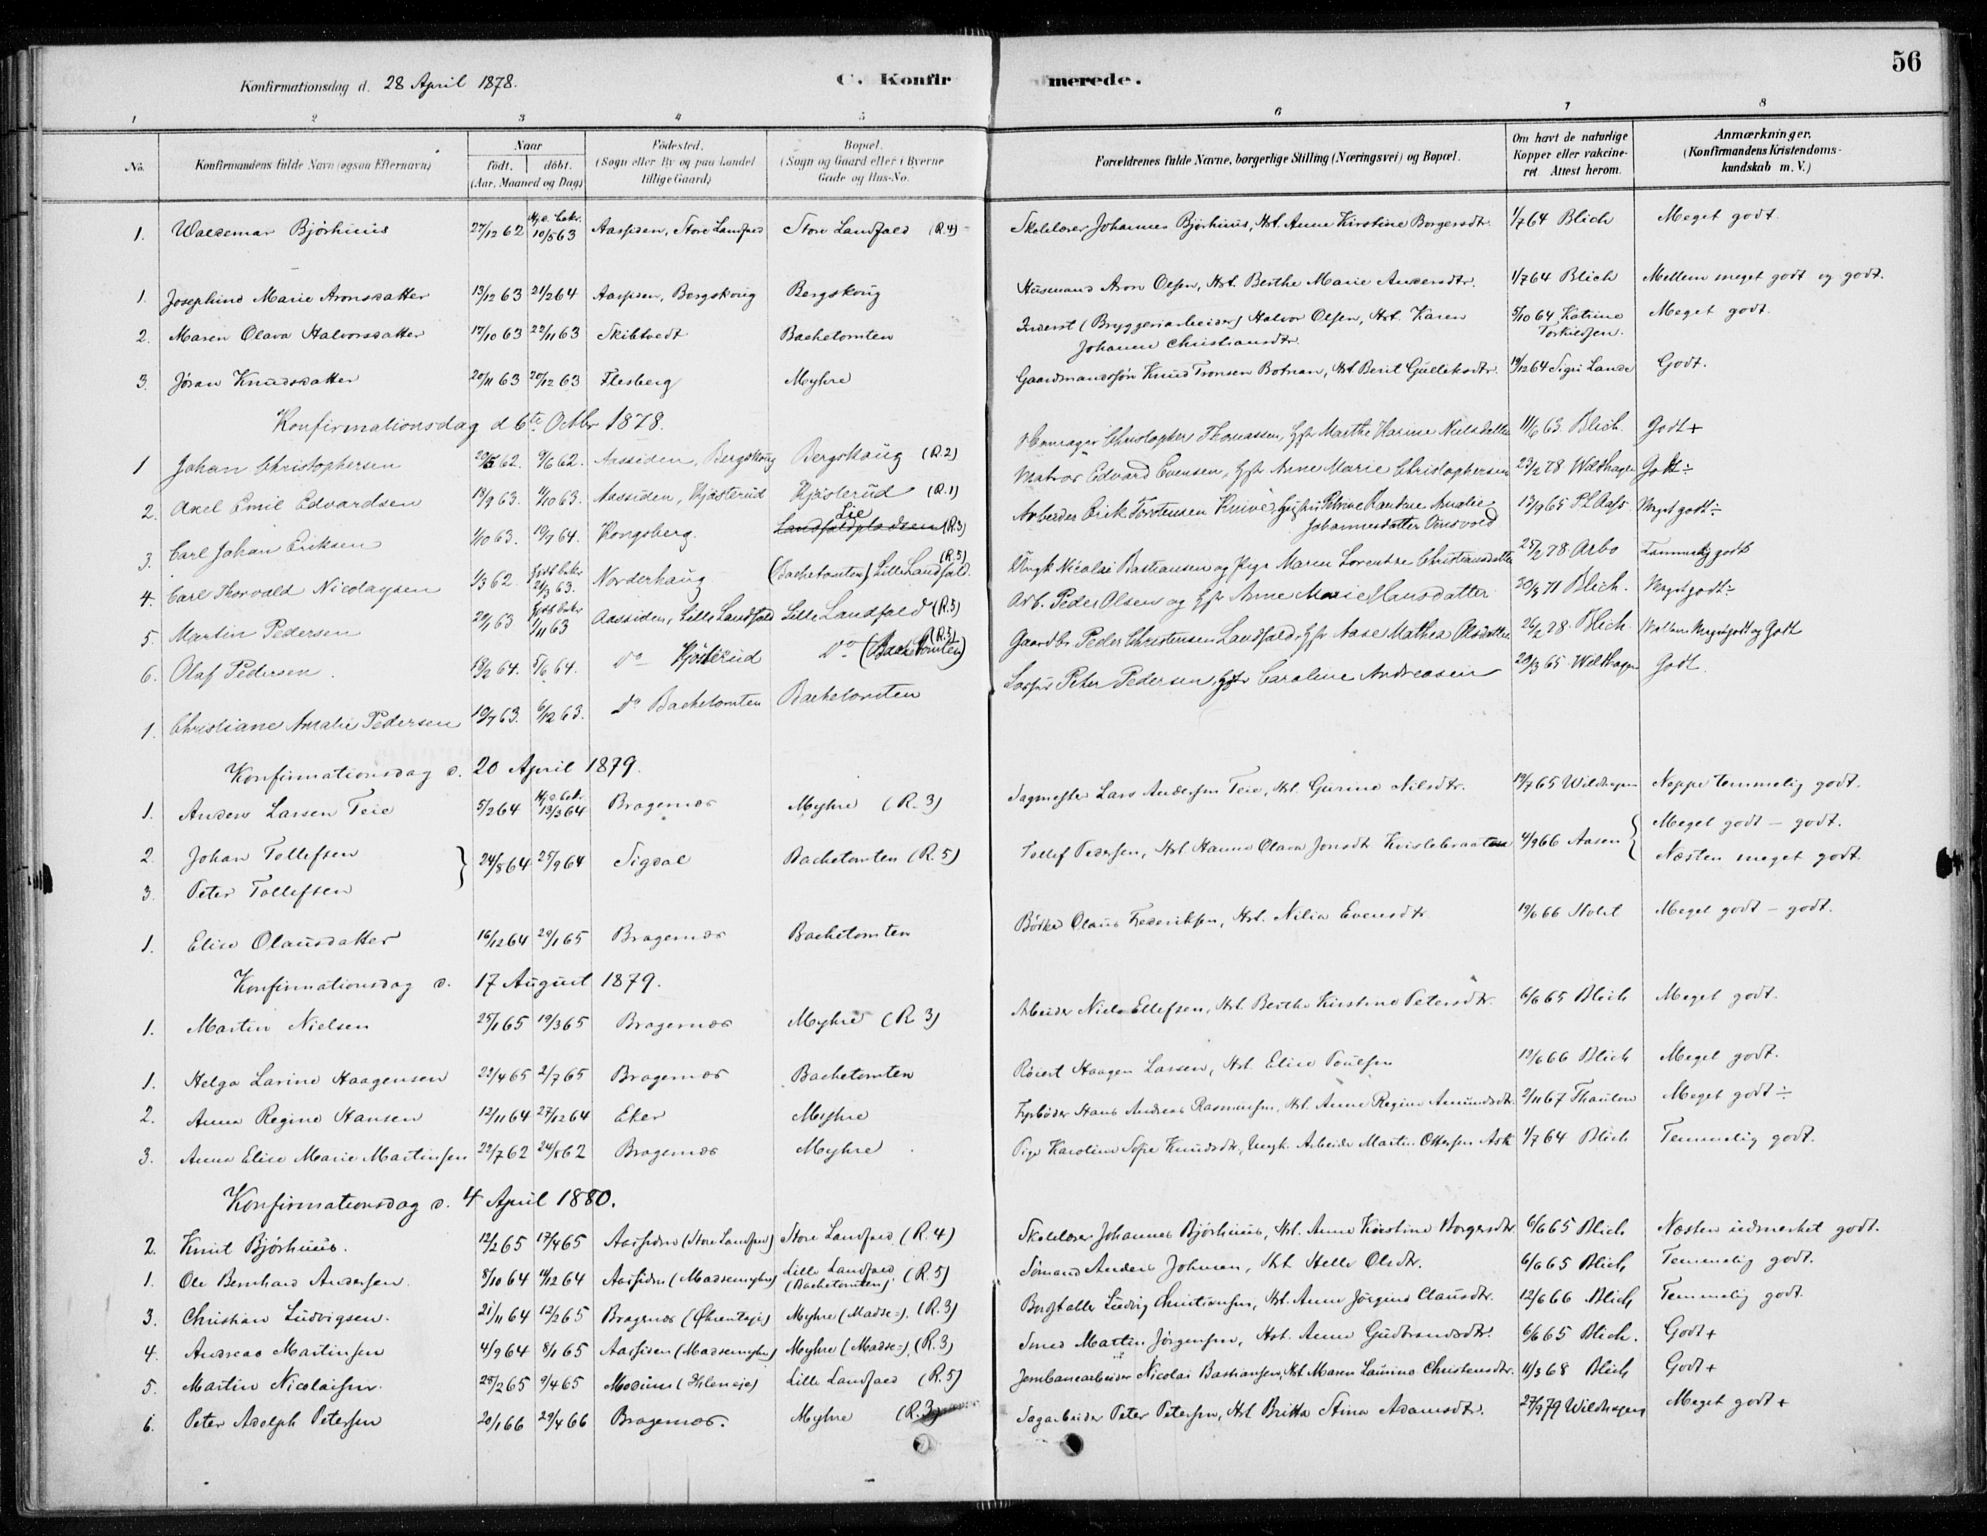 56
Konfirmationsdag d. 28 April 1878.
C. Konfirmerede.
1 2 3 4 5 6 7 8
No. Konfirmandens fulde Navn (ogsaa Efternavn) Naar født. døbt. (Aar, Maaned og Dag) Fødested. (Sogn eller By og paa Landet tillige Gaard) Bopæl. (Sogn og Gaard eller i Byerne Gade og Hus-No. Forældrenes fulde Navne, borgerlige Stilling (Næringsvei) og Bopæl. Om havt de naturlige Kopper eller vakcineret. Attest herom. Anmærkninger. (Konfirmandens Kristendomskundskab m. V.)
1. Waldemar Bjørhuus 27/12 62 10/5 63 Aassiden, Store Landfald Store Landfald (R.4) Skolelærer Johannes Bjørhuus, Hst. Anne Kirstine Borgersdtr. 1/7 64 Blich Meget godt.
1. Josephine Marie Aronsdatter 13/12 63 21/2 64 Aassiden, Bergskoug Bergskoug Husmand Aron Olsen, Hst. Berthe Marie Andersdtr. 1/7 64 Blich Mellem meget godt og godt.
2. Maren Olava Halvorsdatter 17/10 63 22/11 63 Skibtvedt Bachetomten Inderst (Bryggeriarbeider) Halvor Olsen, Hst. Karen Johanne Christiansdtr. 5/10 64 Katrine Torkildsen. Meget godt.
3. Jøran Knudsdatter 20/11 63 20/12 63 Flesberg Myhre Gaardmandssøn Knud Tronsen Botnan, Hst Berit Gulleksdtr. 19/12 64 Sigri Lande Godt.
Konfirmationsdag d 6te Octbr 1878.
1 Johan Christophersen 20/5 62. 9/6 62. Aassiden, Bergskoug Bergskoug (R.2) Christopher Thomassen, Hst Marthe Karine Nielsdatter 11/6 63. Blich. Godt+
2. Axel Emil Edvardsen 13/9 63. 11/10 63. Aassiden, Kjøsterud Kjøsterud (R.1) Matros Edvard Evensen, Hst Anne Marie Christophersen 23/2 78 Wildhagen Godt÷
3. Carl Johan Eriksen 1/10 63. 10/7 64. Kongsberg. Landfaldpladsen Lie (R.3) Arbeider Erik Torstensen Amalie Johannesdatter 13/9 65 Meget godt÷
4. Carl Thorvald Nicolaysen 1/3 62. 21/3 63. Norderhaug (Bachetomten) Lille Landfald. (R.5) Ungk Nicolai Bastiansen og Pige Maren Lorentze Christiansdatter 25/2 78 Arbo Temmelig godt
5. Martin Pedersen 20/7 63 1/11 63 Aassiden, Lille Landfald Lille Landfald (R.5) Arb. Peder Olsen og Hst Anne Marie Hansdatter 30/3 71 Blich. Meget godt÷
6. Olaf Pedersen. 18/2 64. 5/6 64. Do Kjøsterud Do (Bachetomten) (R.5) Gaardbr Peder Christensen Landfald, Hst Aase Mathea Olsdatter 26/2 78 Blich Mellem Meget godt og Godt
1. Christiane Amalie Pedersen 10/7 63. 6/12 63. Do Bachetomten Bachetomten Peter Pedersen, Hst Caroline Andreasen 20/3 65 Wildhagen Godt.
Konfirmationsdag d. 20 April 1879.
1. Anders Larsen Teie 5/2 64 13/3 64 Bragernæs Myhre (R. 3) Sagmester Lars Andersen Teie, Hst. Gurine Nilsdtr. 19/7 65 Wildhagen Neppe temmelig godt.
2. Johan Tollefsen 24/8 64 25/9 64 Sigdal Bachetomten (R. 5) Tollef Pedersen, Hst Hanne Olava Jonsdtr Kvislebraaten 4/9 66 Aasen Meget godt – godt.
3. Peter Tollefsen Næsten meget godt.
1. Elise Olausdatter 16/12 64 29/1 65 Bragernæs Bachetomten Bødker Olaus Frederiksen, Hst. Nilia Evensdtr 19/6 66 Holst Meget godt – godt.
Konfirmationsdag d. 17 August 1879.
1. Martin Nielsen 25/1 65 19/3 65 Bragernæs Myhre (R 3) Arbeider Niels Ellefsen, Hst Berthe Kirstine Petersdtr. 6/6 65 Blich Meget godt.
1. Helga Larine Haagensen 22/4 65 2/7 65 Bragernæs Bachetomten Haagen Larsen, Hst. Elise Poulsen 12/6 66 Blich Meget godt.
2. Anna Regine Hansen 12/11 64 27/12 64 Eker Myhre Fyrbøder Hans Andreas Rasmussen, Hst. Anne Regine Amundsdtr. 2/11 67 Thaulow Meget godt ÷
3. Anna Elise Marie Martinsen 22/7 62 24/8 62 Bragernæs Myhre Pige Karoline Sofie Knudsdtr, Ungk. Arbeider Martin Ottersen Ask 1/7 64 Blich Temmelig godt.
Konfirmationsdag d. 4 April 1880.
2. Knut Bjørhuus. 12/2 65 17/4 65 Aassiden (Store Landfald) Store Landfald (R. 4) Skolelærer Johannes Bjørhuus, Hst. Anne Kirstine Borgersdtr. 6/6 65 Blich Næsten udmerket godt.
1. Ole Bernhard Andersen. 8/10 64 11/12 64 Aassiden (Madsemyhre) Lille Landfald (Bachetomten) (R. 5) Sømand Anders Johnsen, Hst Helle Olsdtr. 6/6 65 Blich Temmelig godt.
3. Christian Ludvigsen. 21/11 64 12/2 65 Bragernæs (Øhrenløje) Myhre (Madse=). (R. 3) Ludvig Christiansen, Hst. Anne Jørgine Clausdtr. 12/6 66 Blich Temmelig godt.
4. Andreas Martinsen 4/9 64 8/1 65 Aassiden (Madsemyhre) Myhre (Madse=). (R. 3) Smed Martin Jørgensen, Hst. Anne Gudbrandsdtr. 6/6 65 Blich. Godt+
5. Martin Nicolaisen. 25/2 65 9/4 65 Modum Lille Landfald (R. 5) Jernbanearbeider Nicolai Bastiansen, Hst Maren Laurine Christensdtr. 11/3 68 Blich Godt+
6. Peter Adolph Petersen 20/1 66 29/4 66 Bragernæs. Myhre (R. 3) Sagarbeider Peter Petersen, Hst Britta Stina Adamsdtr. 27/9 79 Wildhagen Meget godt+